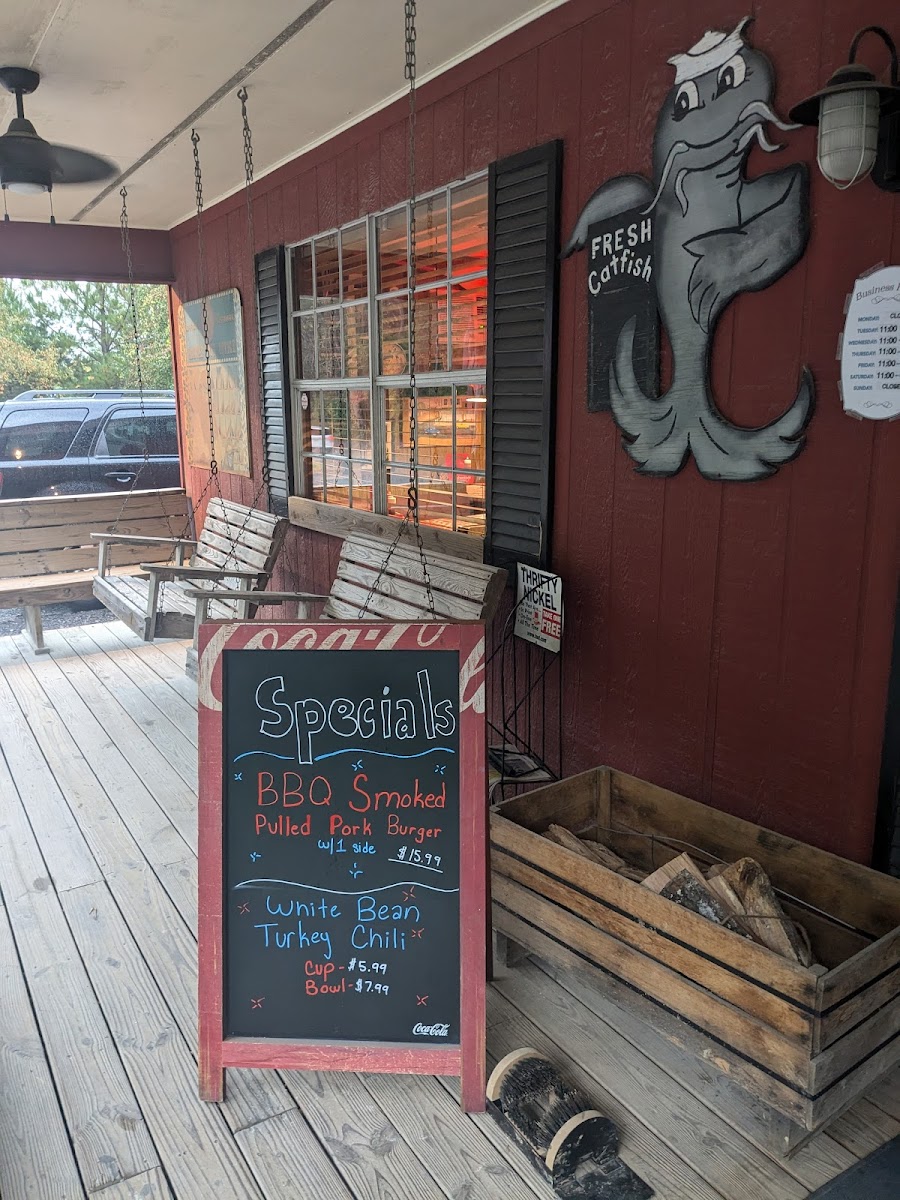 FRESH
Catfish
Business
MONDAY: CLO
TUESDAY: 11:00
WEDNESDAY: 11:00
THURSDAY: 11:00
FRIDAY: 11:00
SATURDAY: 11:00
SUNDAY: CLOSE
THRIFTY
NICKEL
FREE
Coca-Co
Specials
BBQ Smoked
Pulled Pork Burger
w/1 side
$15.99
White Bean
Turkey Chili
Cup-$5.99
Bowl-$7.99
Coca-Cola